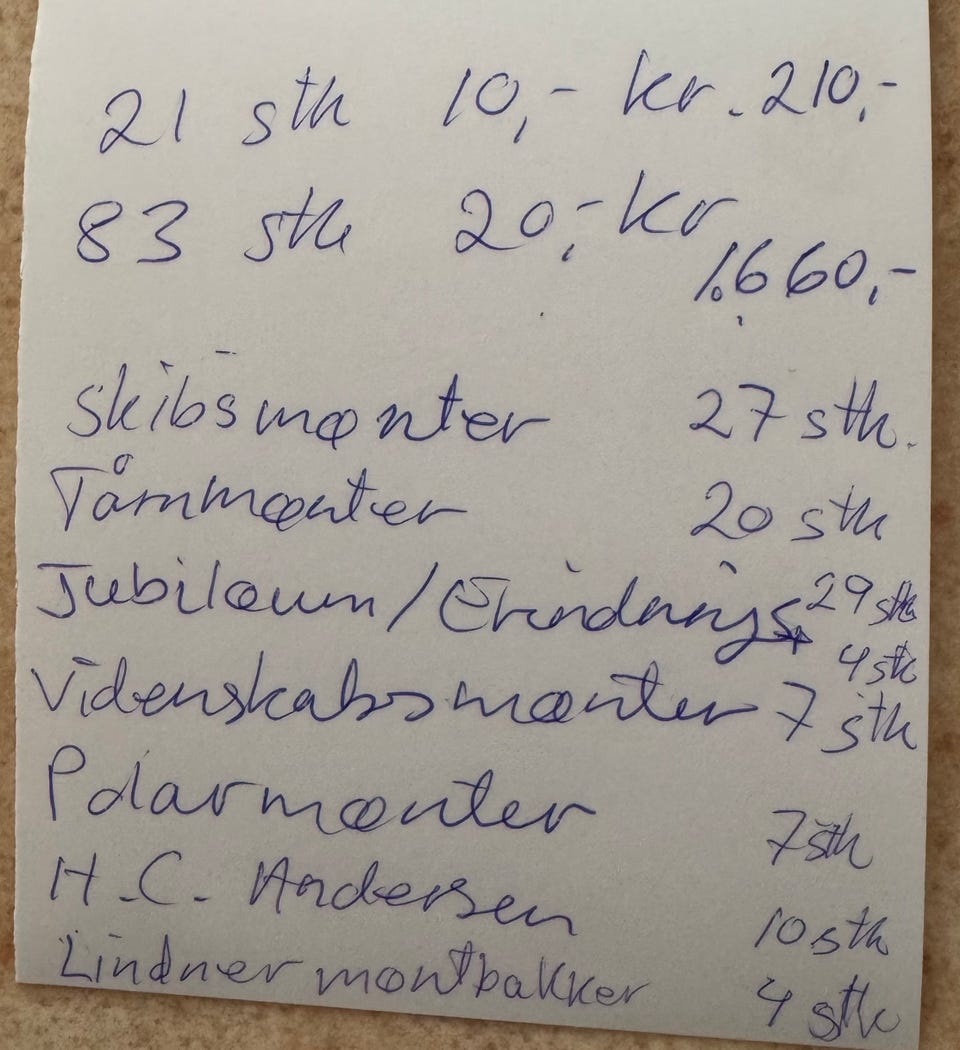 21 stk 10,- kr. 210,-
83 stk 20,- kr
1.660,-
Skibsmønter 27 stk.
Tårnmønter 20 stk
Jubilæum/Erindrings 29 stk
4 stk
Videnskabsmønter 7 stk
Polarmønter 7 stk
H.C. Andersen 10 stk
Lindner møntbakker 4 stk